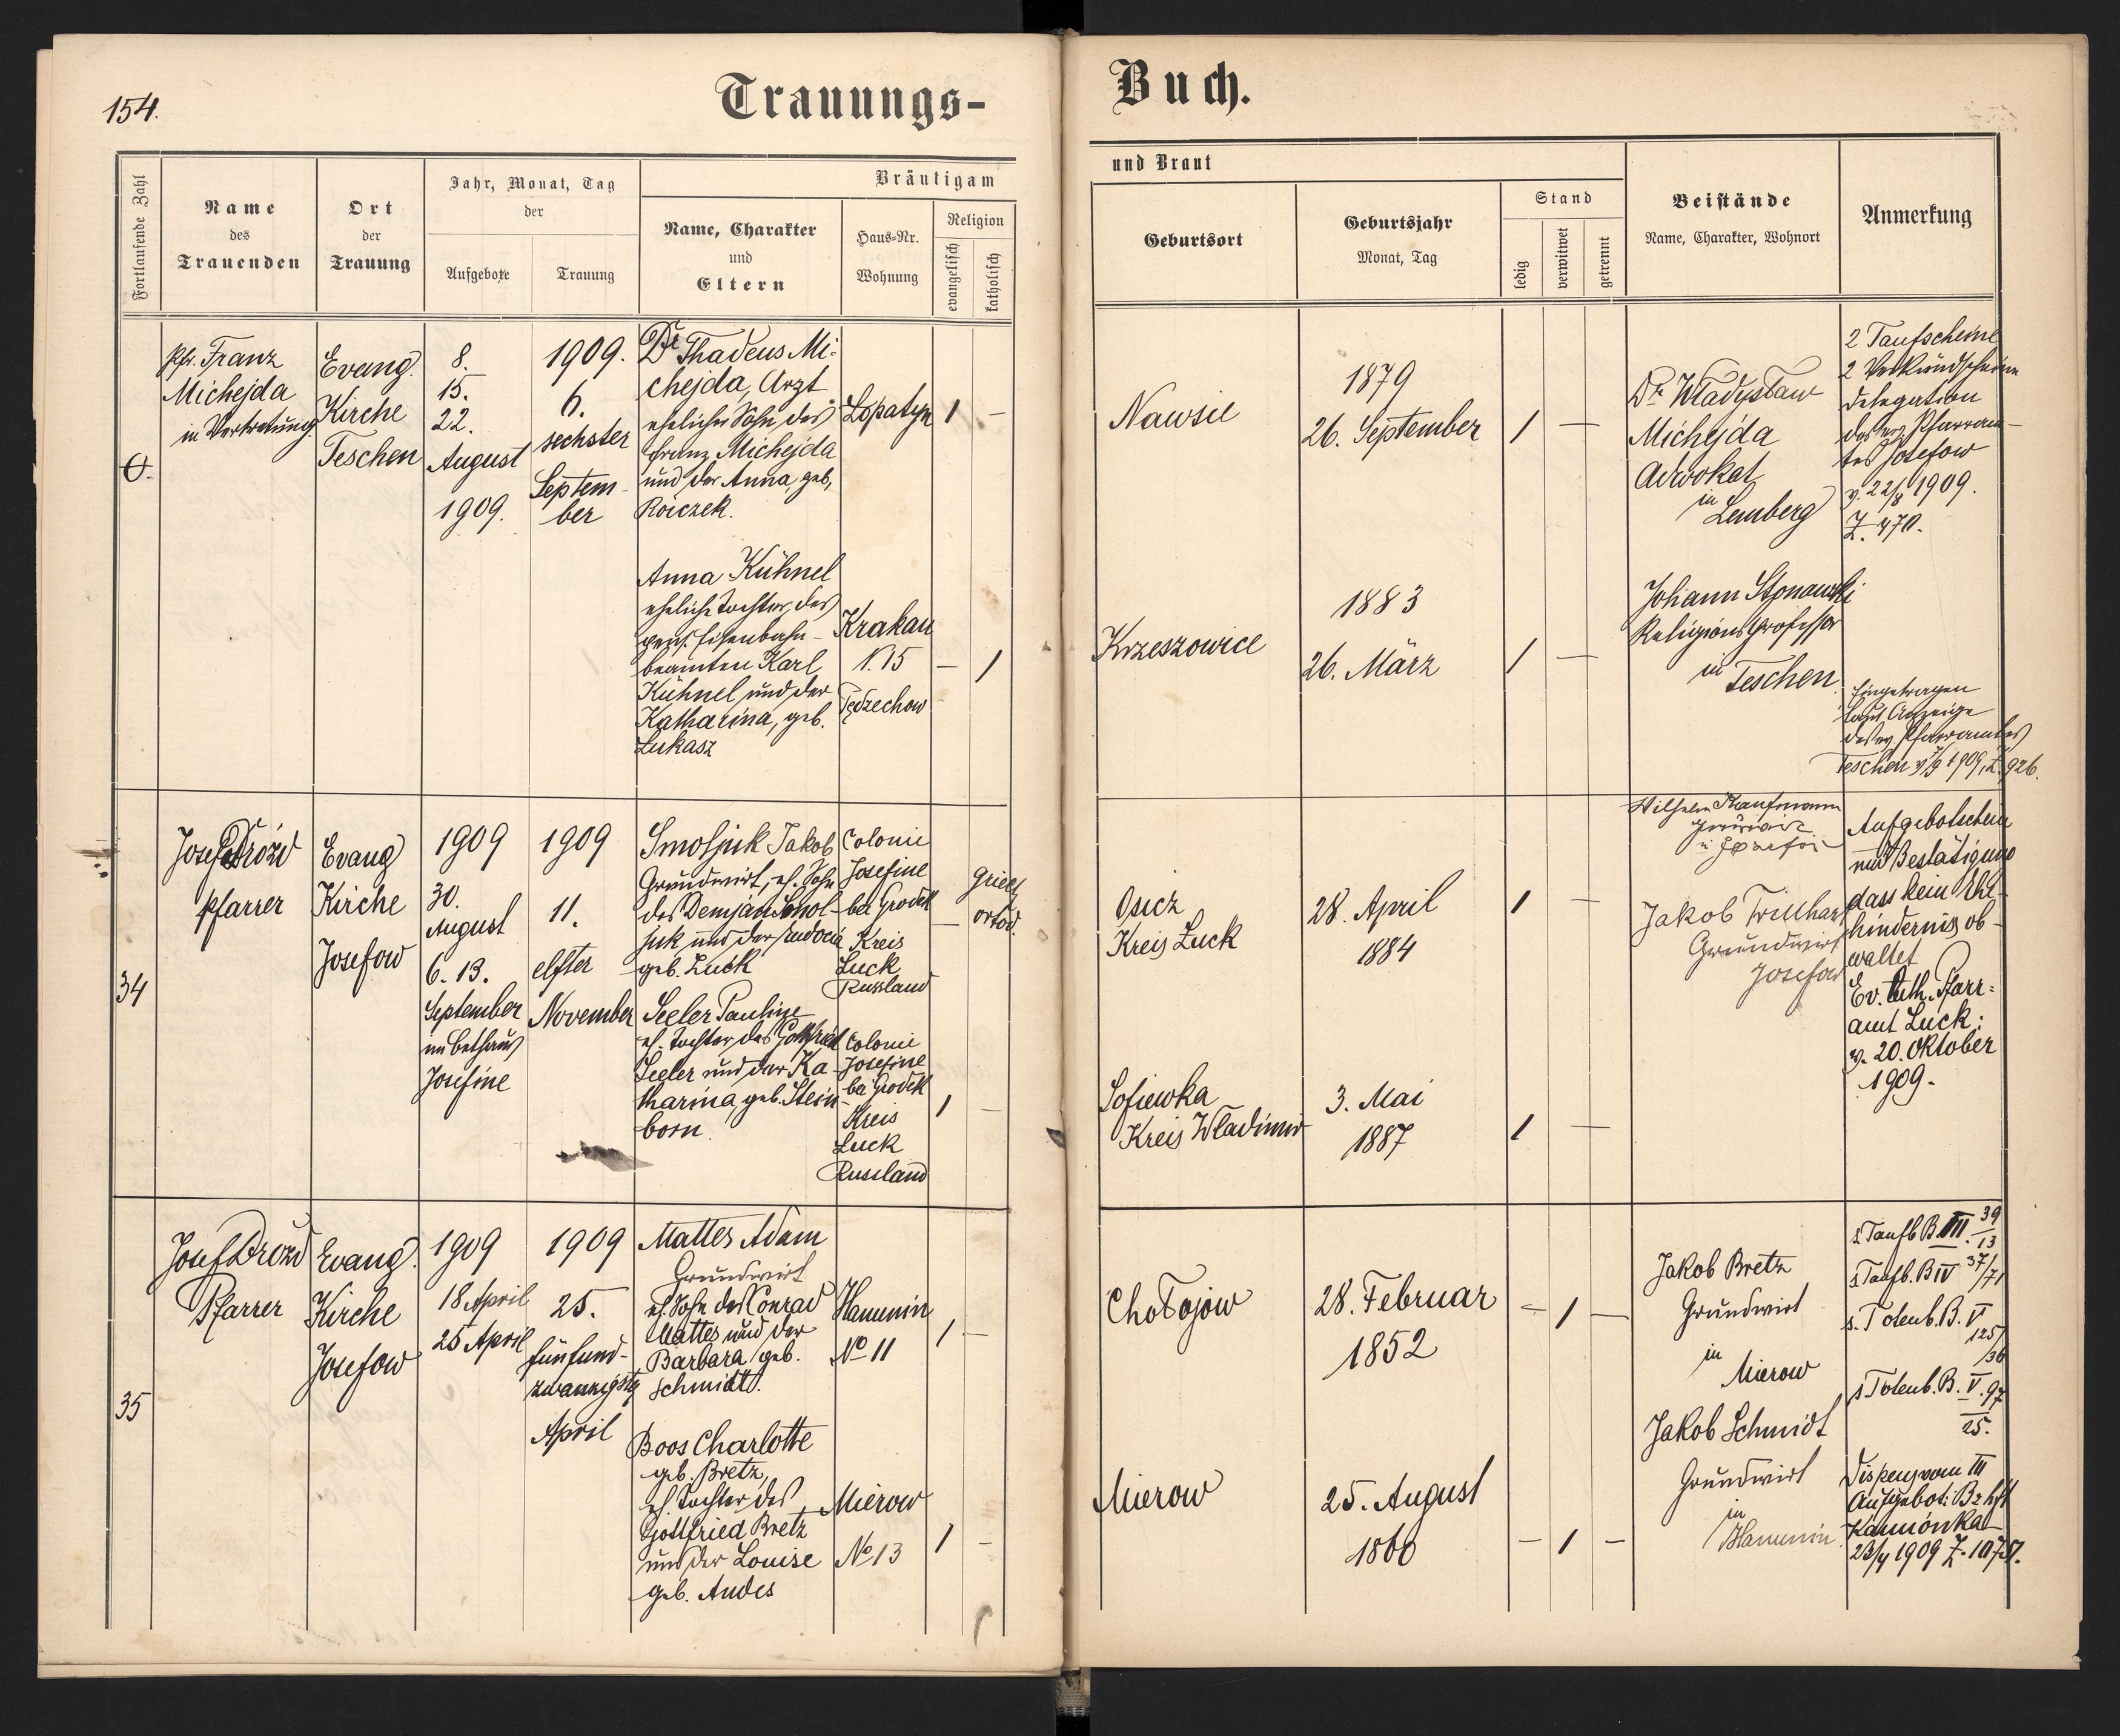 154.
Trauungs-
Buch.
Fortlaufende Zahl
Name
des
Trauenden
Ort
der
Trauung
Jahr, Monat, Tag
der
Aufgebote
Trauung
Bräutigam
Name, Charakter
und
Eltern
Haus-Nr.
Wohnung
Religion
evangelisch
katholisch
und Braut
Geburtsort
Geburtsjahr
Monat, Tag
Stand
ledig
verwitwet
getrennt
Beistände
Name, Charakter, Wohnort
Anmerkung
Pfr. Franz
Michejda
in Vertretung.
Evang.
Kirche
Teschen
8.
15.
22.
August
1909.
1909.
6.
sechster
Septem-
ber
Dr Thadeus Mi-
chejda, Arzt
ehelicher Sohn des
Franz Michejda
und der Anna, geb.
Roiczek.
Lopatyn
1
–
Nawsie
1879
26. September
1
—
Dr. Władysław
Michejda
Advokat
in
Lemberg
2 Taufscheine
2 Verkündscheine
Delegation
des ev. Pfarram-
tes Josefow
v. 22/8 1909.
Z. 470.
Anna Kühnel
eheliche Tochter des
pens. Eisenbahn-
beamten Karl
Kühnel und der
Katharina, geb.
Lukasz
Krakau
N. 15
–
1
Krzeszowice
1883
26. März
1
—
Johann Stonawski
Religionsprofessor
in
Teschen.
Eingetragen
laut Anzeige
des ev. Pfarramtes
Teschen 1909, Z. 926.
34
Josef Drózd
Pfarrer
Evang
Kirche
Josefow
1909
30.
August
6. 13.
September
im Bethaus
Josefine
1909
11.
elfter
November
Smoljuk Jakob
Grundwirt, eh. Sohn
des Demjan Smol-
juk und der
geb. Luck
Colonie
Josefine
bei Grodek
Kreis
Luck
Russland
–
griech
ortod.
Osicz
Kreis Luck
28. April
1884
1
—
Wilhelm Kaufmann
Jakob Trillhar
Grundwirt
Josefow
Aufgebotschein
und Bestätigung
dass kein Ehe-
hindernis ob-
waltet
Ev. luth. Pfarr-
amt Luck:
v. 20. Oktober
1909.
Seeler Pauline
eh. Tochter des Gottfried
Seeler und der Ka-
tharina geb. Stein-
born.
Colonie
Josefine
bei Grodek
Kreis
Luck
Russland
1
–
Sofiewka
Kreis Wladimir
3. Mai
1887
1
—
35
Josef Drózd
Pfarrer
Evang.
Kirche
Josefow
1909
18 April
25 April
1909
25.
fünfund-
zwanzigste
April
Mattes Adam
Grundwirt
eh. Sohn des Conrad
Mattes und der
Barbara geb.
Schmidt.
Hanunin
No 11
1
–
Chołojow
28. Februar
1852
–
1
–
Jakob Bretz
Grundwirt
in
Mierow
s. Taufb. B. III. 39/13
s. Taufb. B IV 37/71
s. Totenb. B. V
125/36
s. Totenb. B. V. 97
25.
Boos Charlotte
geb. Bretz,
eh. Tochter des
Gottfried Bretz
und der Louise
geb. Andes
Mierow
No 13
1
–
Mierow
25. August
1860
–
1
–
Jakob Schmidt
Grundwirt
in
Hanunin.
Dispens vom III
Aufgebot: Bzhft
Kamionka
23/4 1909